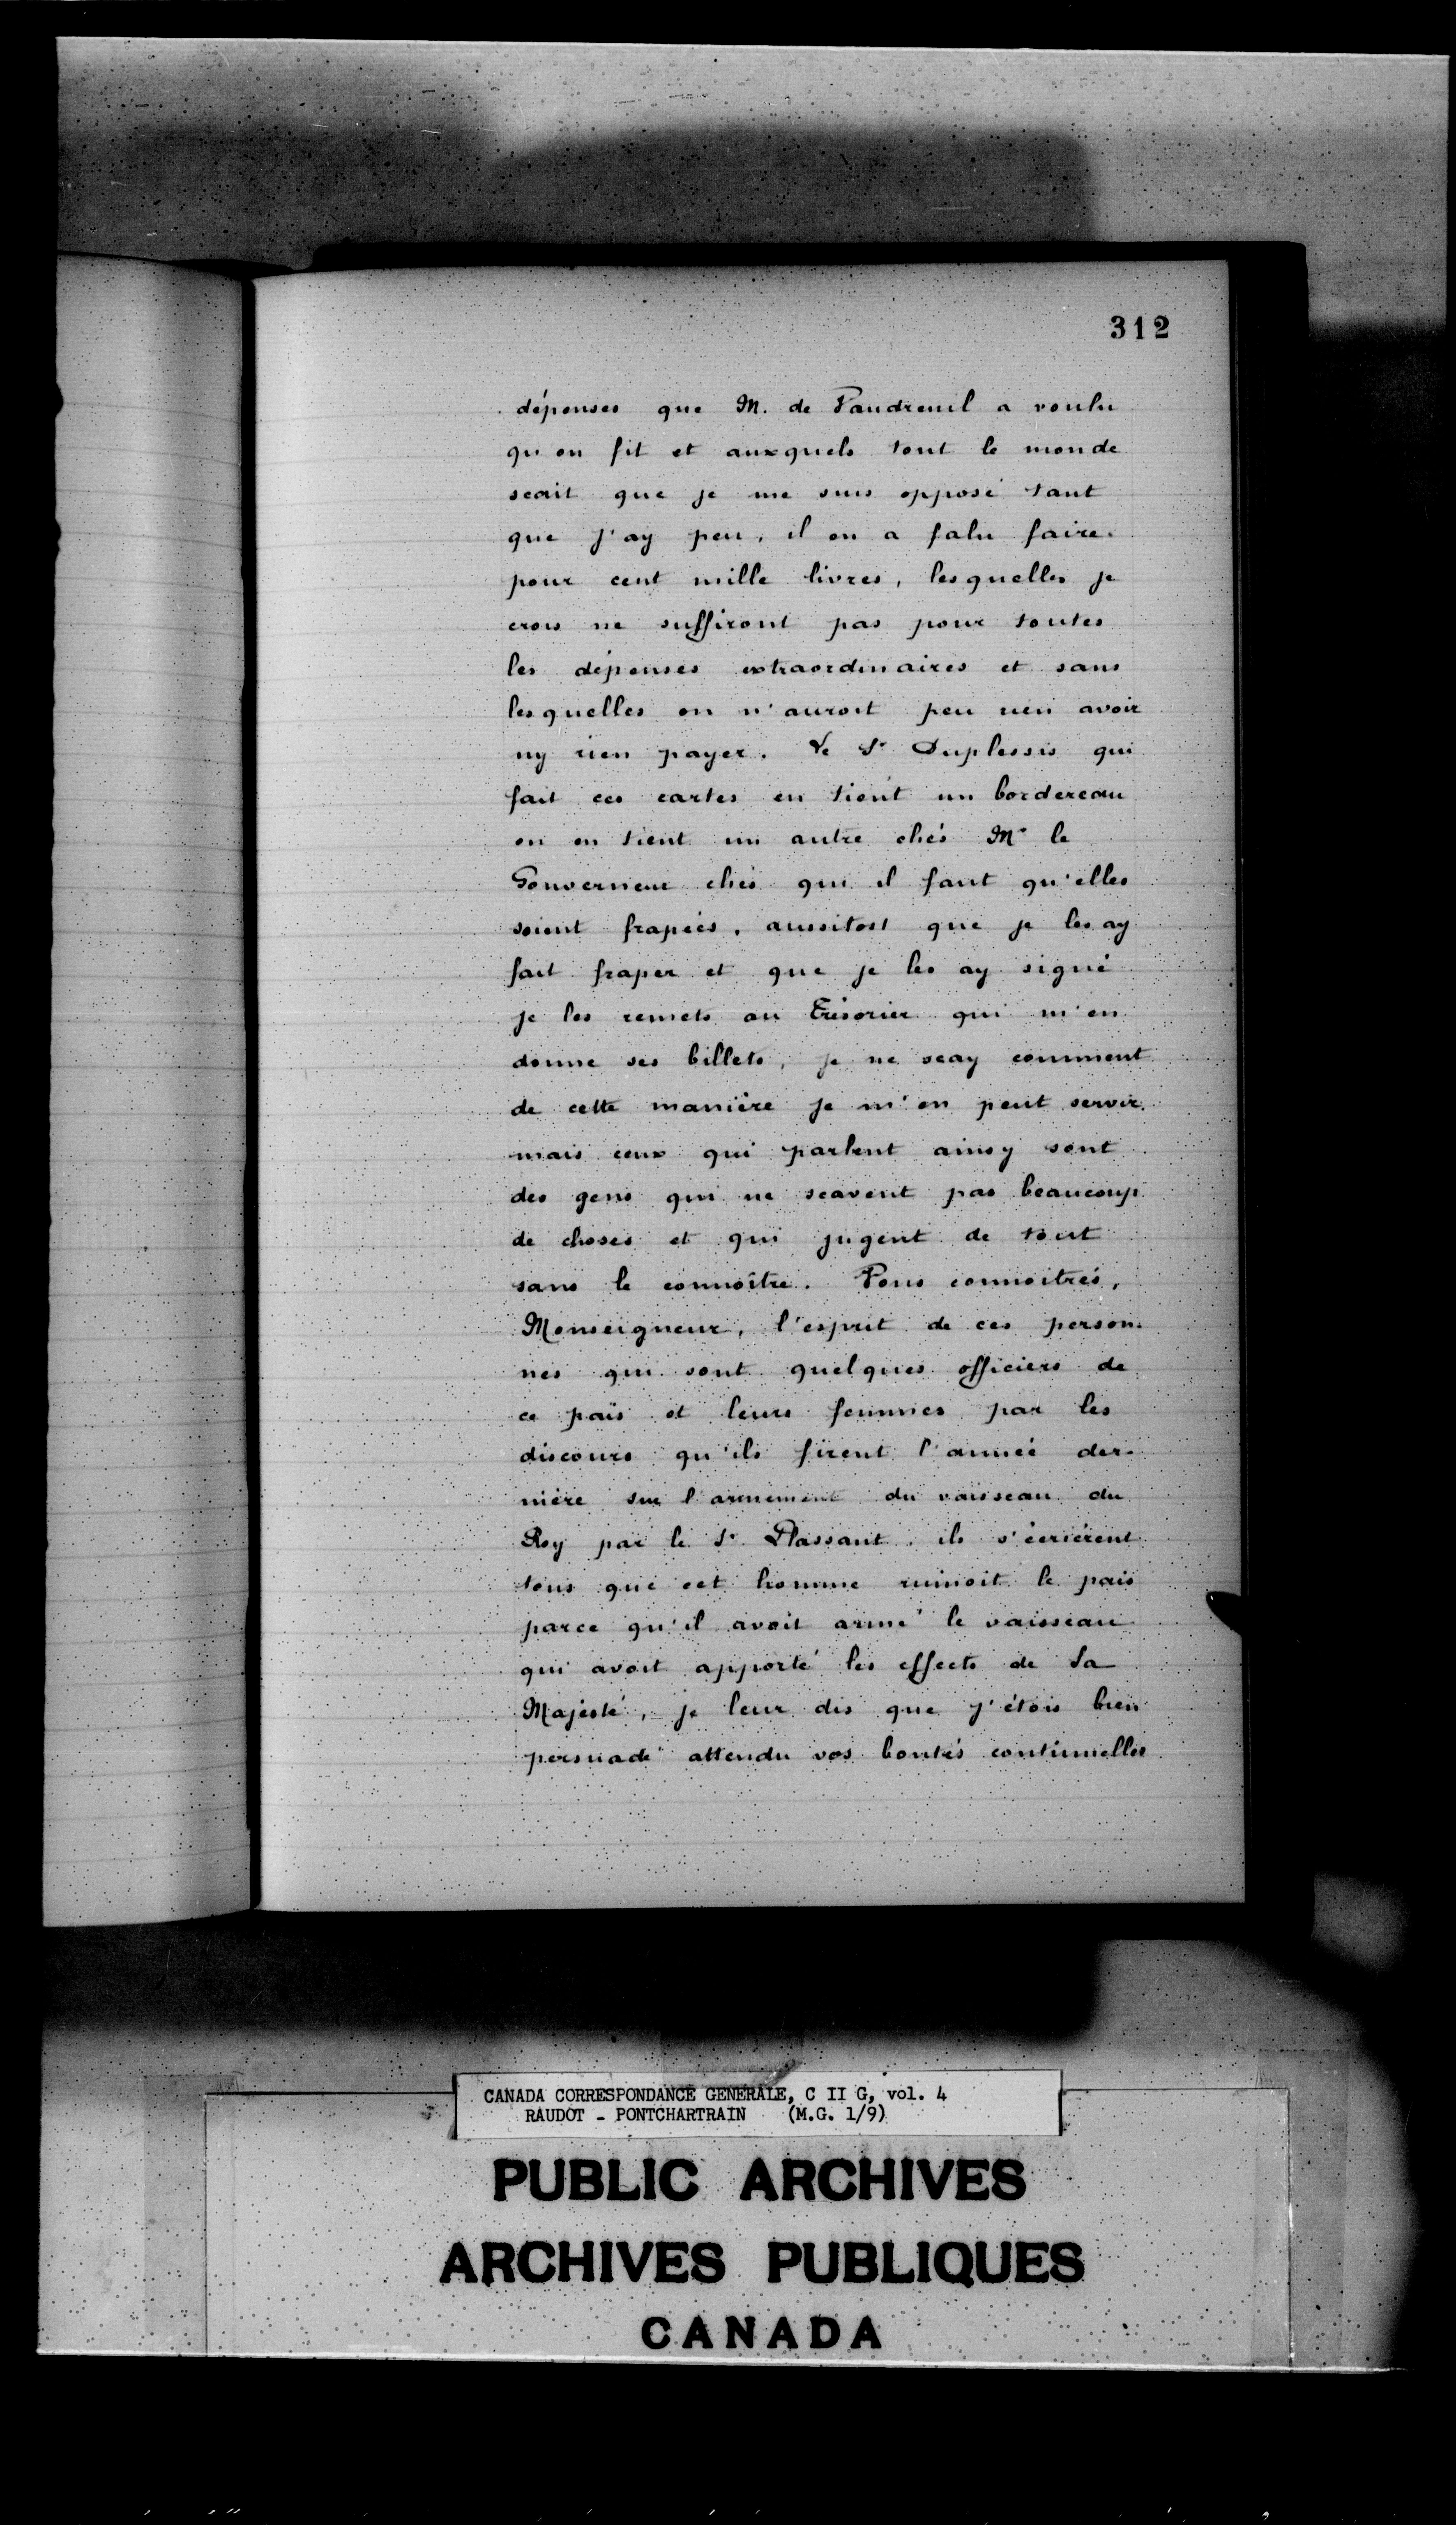 312
dépenses que M. de Vaudreuil a voulu
qu'on fit et auxquels tout le monde
scait que je me suis opposé tant
que j'ay peu, il en a falu faire
pour cent mille livres, lesquelles je
crois ne suffiront pas pour toutes
les dépenses extraordinaires et sans
lesquelles on n'auroit peu rien avoir
ny rien payer. Le Sr Duplessis qui
fait ces cartes en tient un bordereau
on en tient un autre chés Mr le
Gouverneur chés qui il faut qu'elles
soient frapées, aussitost que je les ay
fait fraper et que je les ay signé
je les remets au Trésorier qui m'en
donne ses billets, je ne scay comment
de cette manière je m'en peut servir.
mais ceux qui parlent ainsy sont
des gens qui ne scavent pas beaucoup
de choses et qui jugent de tout
sans le connoître. Vous connoitrés,
Monseigneur, l'esprit de ces person-
nes qui sont quelques officiers de
ce païs et leurs femmes par les
discours qu'ils firent l'année der-
nière sur l'armement du vaisseau du
Roy par le Sr Plassant, ils s'écrièrent
tous que cet homme ruinoit le païs
parce qu'il avoit armé le vaisseau
qui avoit apporté les effects de Sa
Majesté, je leur dis que j'étois bien
persuadé attendu vos bontés continuelles
CANADA CORRESPONDANCE GENERALE, C II G, vol. 4
RAUDOT - PONTCHARTRAIN (M.G. 1/9)
PUBLIC ARCHIVES
ARCHIVES PUBLIQUES
CANADA